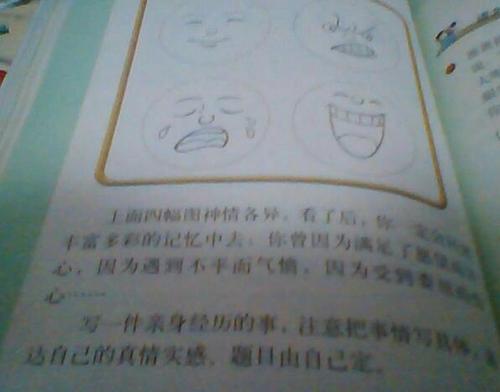 上面四幅图神情各异。看了后，你一定会
丰富多彩的记忆中去：你曾因为满足了愿望而
心，因为遇到不平而气愤，因为受到委屈而
心……
写一件亲身经历的事，注意把事情写具体，表
达自己的真情实感。题目由自己定。